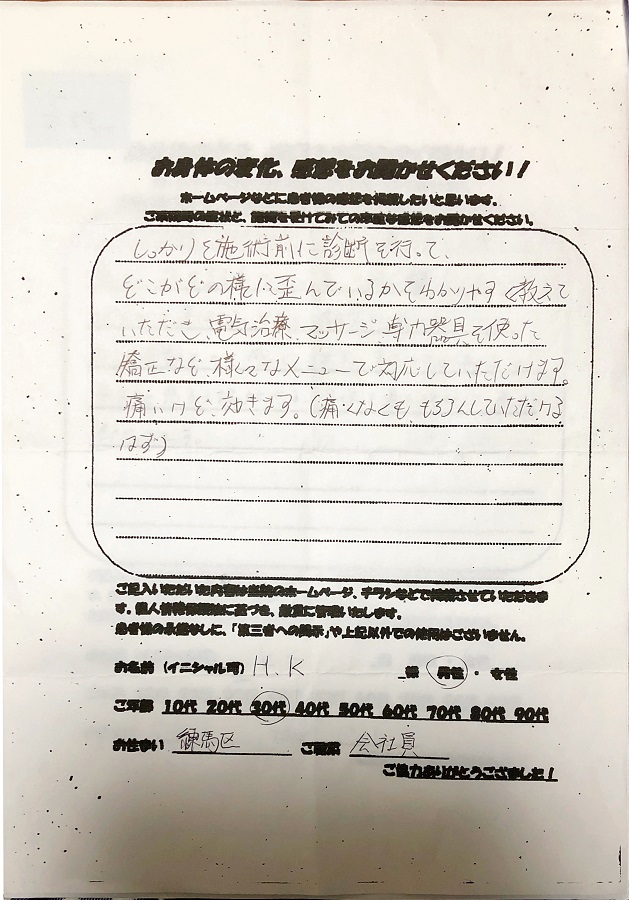 お身体の変化、感想をお聞かせください！
ホームページなどに患者様の感想を掲載したいと思います。
ご来院時の症状と、施術を受けてみての率直な感想をお聞かせください。
しっかりと施術前に診断を行って、
どこがどの様に歪んでいるかをわかりやすく教えて
いただき、電気治療、マッサージ、専力器具を使った
矯正など、様々なメニューで対応していただけます。
痛いけど、効きます。(痛くなくも、もちろんしていただける
はず)
ご記入いただいた内容は当院のホームページ、チラシなどで掲載させていただきま
す。個人情報保護法に基づき、厳重に管理いたします。
患者様の承諾なしに、「第三者への掲示」や上記以外での使用はございません。
お名前 (イニシャル可) H.K 様 男性・女性
ご年齢 10代 20代 30代 40代 50代 60代 70代 80代 90代
お住まい 練馬区 ご職業 会社員
ご協力ありがとうござました！